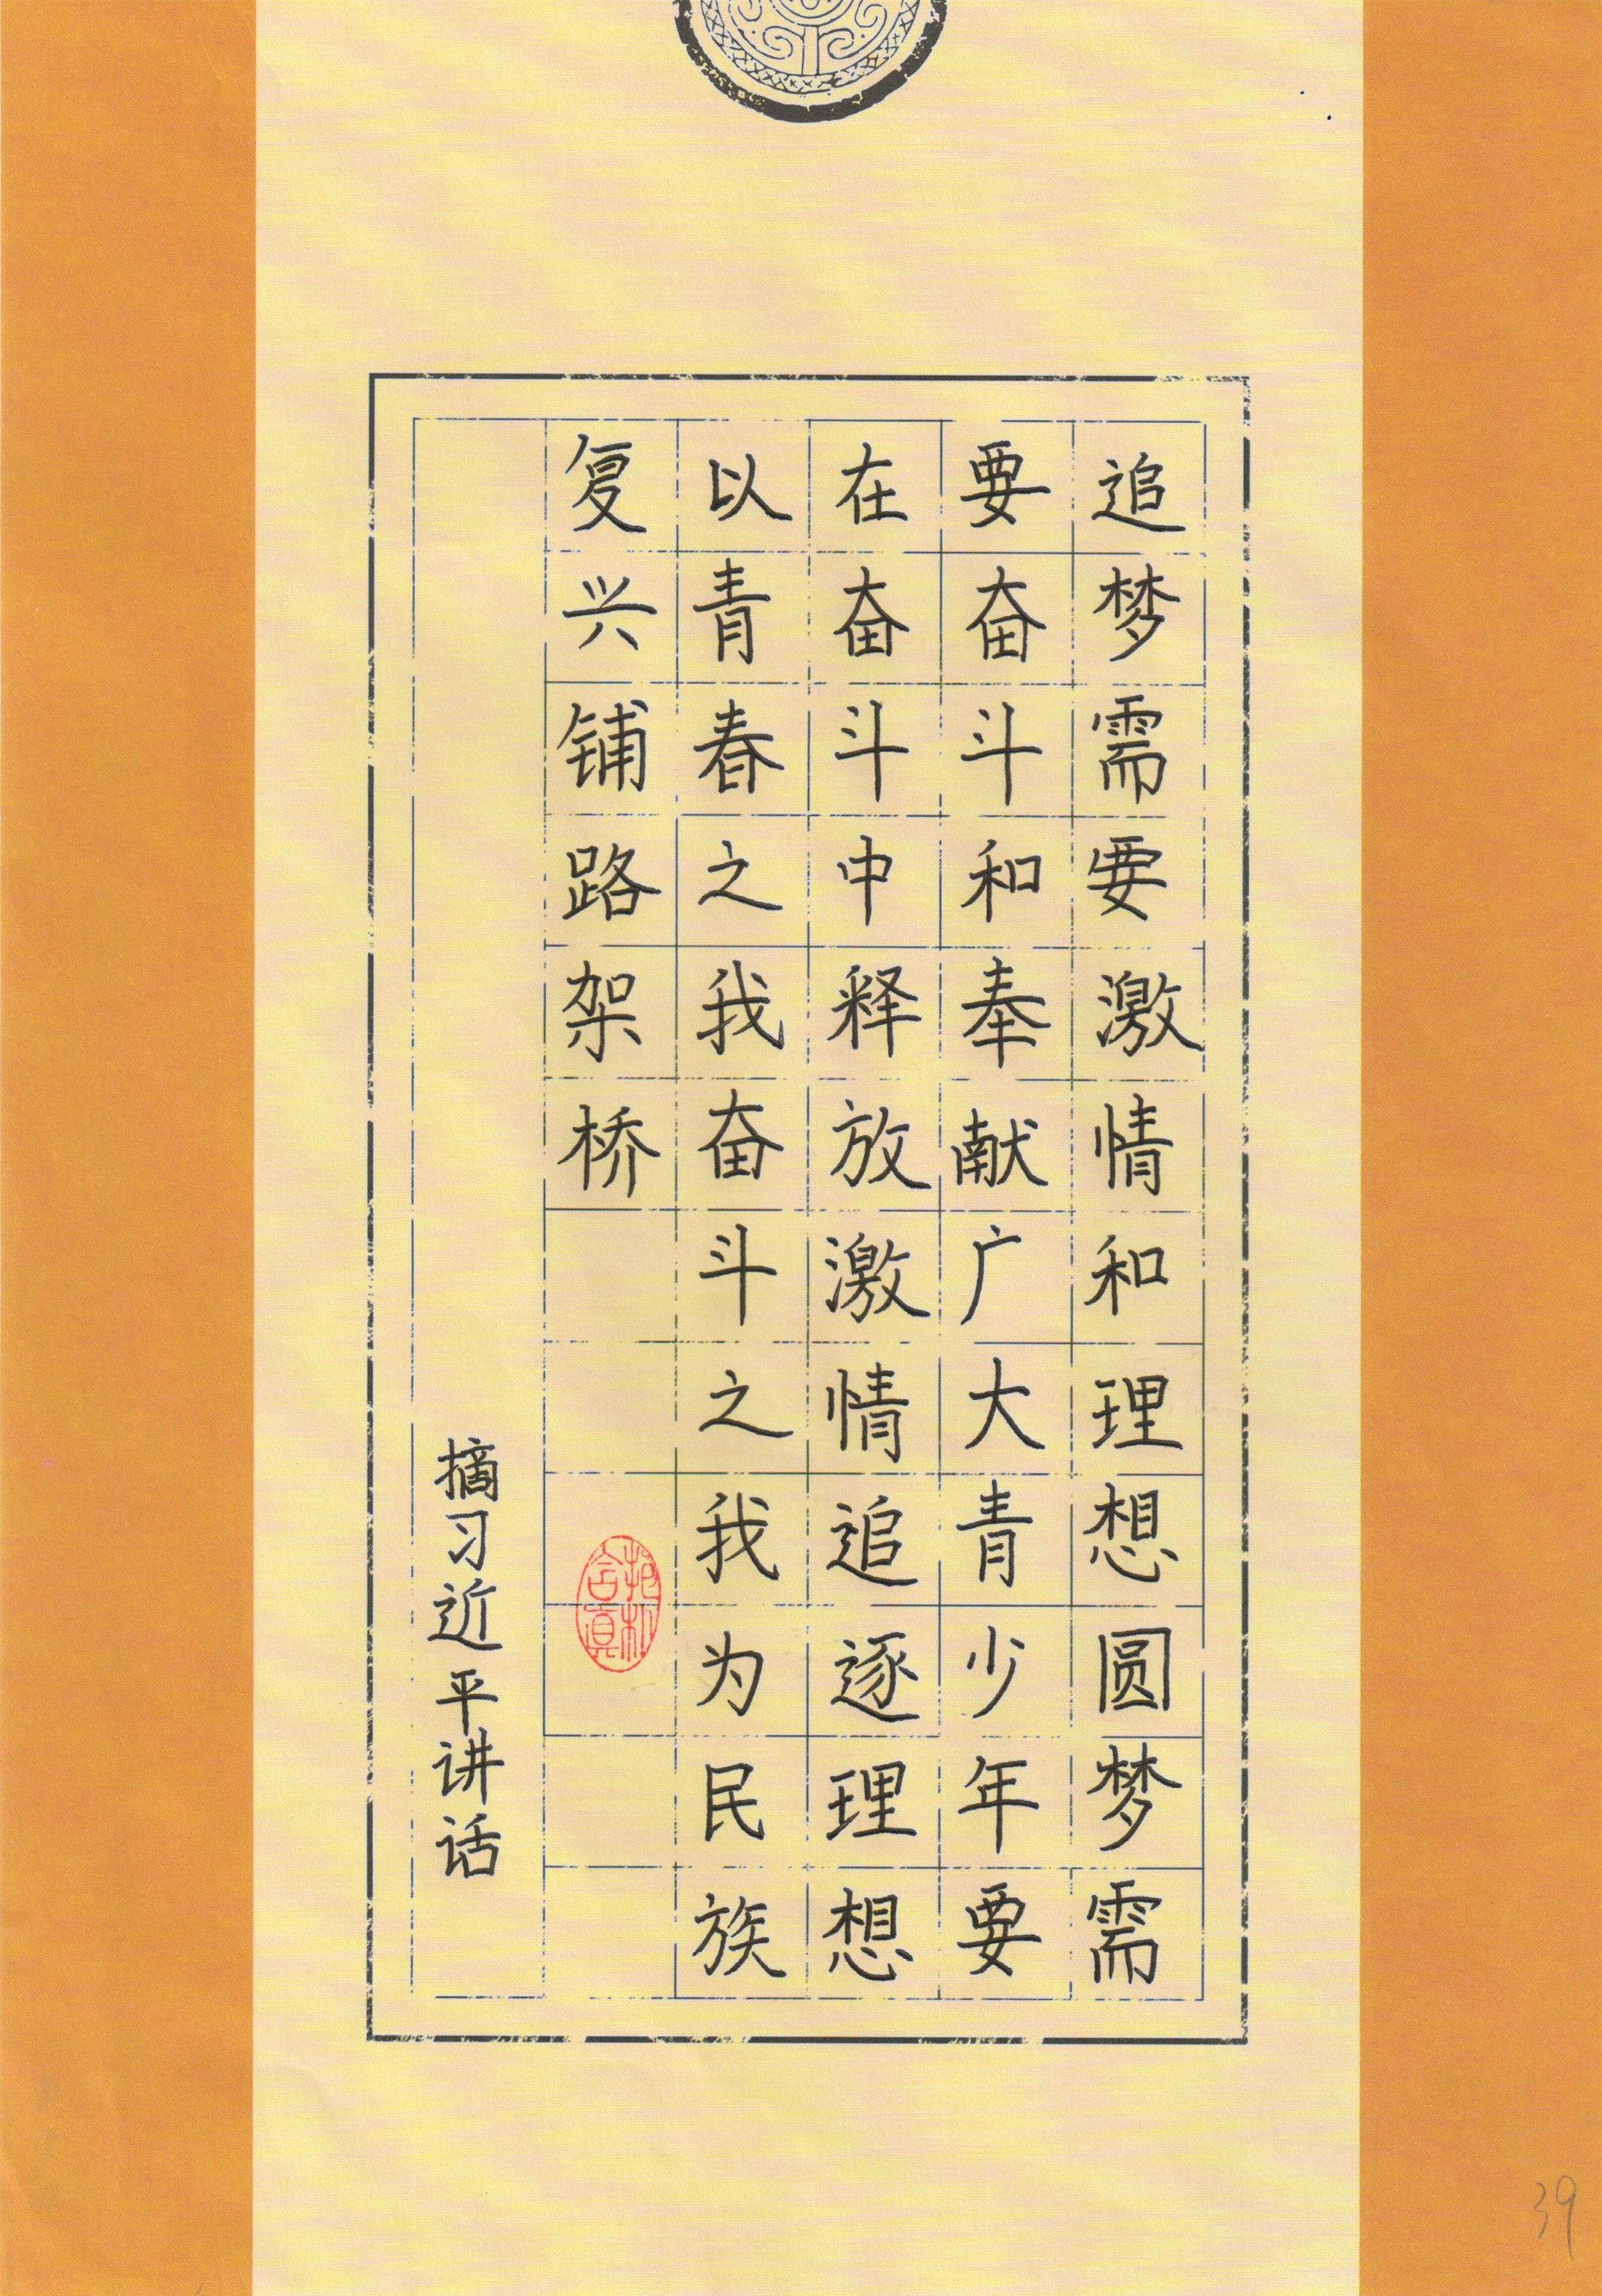 追梦需要激情和理想圆梦需
要奋斗和奉献广大青少年要
在奋斗中释放激情追逐理想
以青春之我奋斗之我为民族
复兴铺路架桥
抱朴含真
摘习近平讲话
39